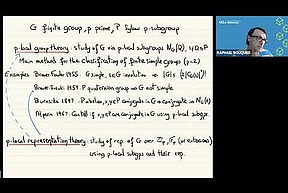 G finite group, p prime, P Sylow p-subgroup
p-local group theory: study of G via p-local subgroups N_G(Q), 1≠Q≤P
Main method for the classification of finite simple groups (p=2)
Examples Brauer-Fowler 1955: G simple, s∈G involution ⇒ |G| ≤ (|C_G(s)|²)!
Brauer-Suzuki 1959: P quaternion group ⇒ G not simple
Burnside 1897: P abelian, x,y∈P conjugate in G ⇒ conjugate in N_G(P)
Alperin 1967: Control if x,y∈P are conjugate in G using p-local subgps.
p-local representation theory: study of rep. of G over Z_p, F_p (or extensions)
using p-local subgps and their rep.
RAPHAEL ROUQUIER